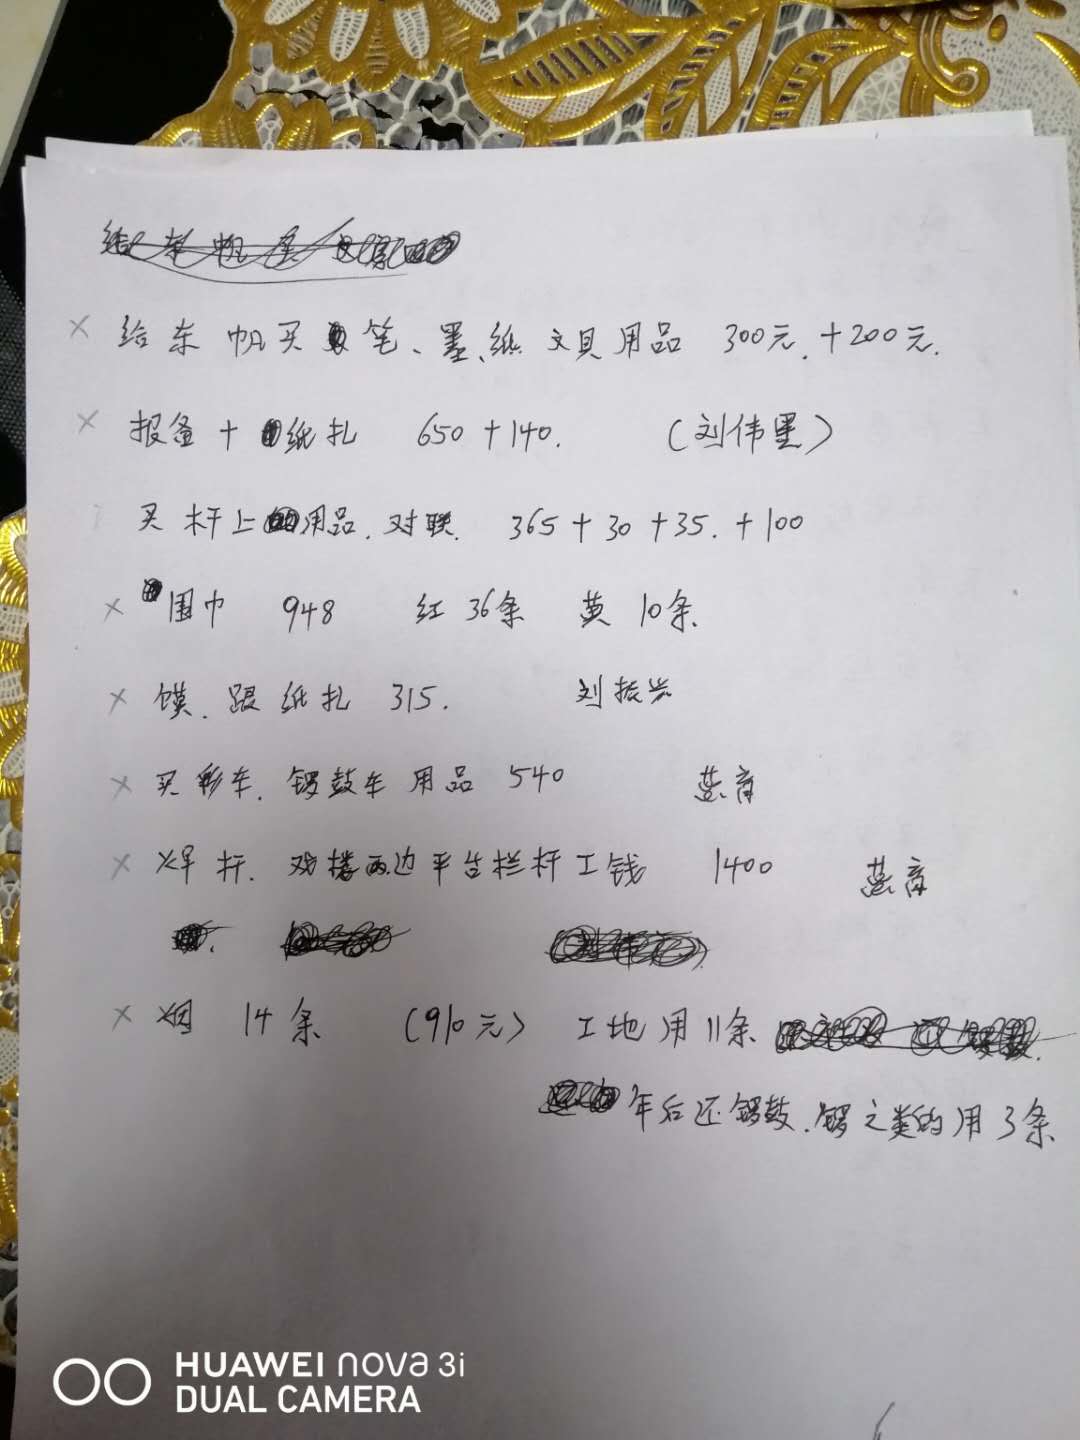 × 给东帆买笔、墨、纸 文具用品 300元.+200元.
× 报备+纸扎 650+140. (刘伟星)
买杆上用品.对联. 365+30+35.+100
× 围巾 948 红36条 黄10条
× 馍.跟纸扎 315. 刘振兴
× 买彩车.锣鼓车用品 540 燕育
× 焊杆.戏楼两边平台栏杆工钱 1400 燕育
× 烟 14条 (910元) 工地用11条
年后还锣鼓.锣之类的用3条
HUAWEI nova 3i
DUAL CAMERA